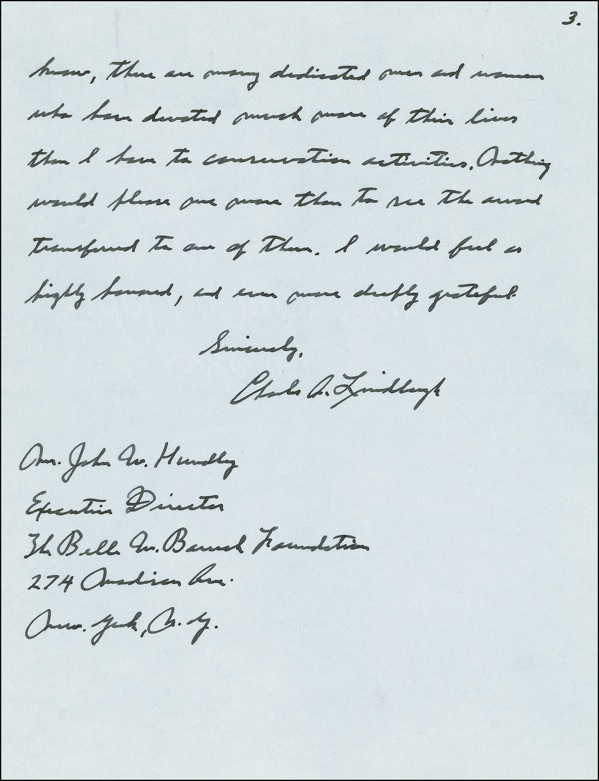 3.
know, there are many dedicated men and women
who have devoted much more of their lives
than I have to conservation activities. Nothing
would please me more than to see the award
transferred to one of them. I would feel as
highly honored, and even more deeply grateful.
Sincerely,
Charles A. Lindbergh
Mr. John W. Hundley
Executive Director
The Belle W. Baruch Foundation
274 Madison Ave.
New York, N.Y.